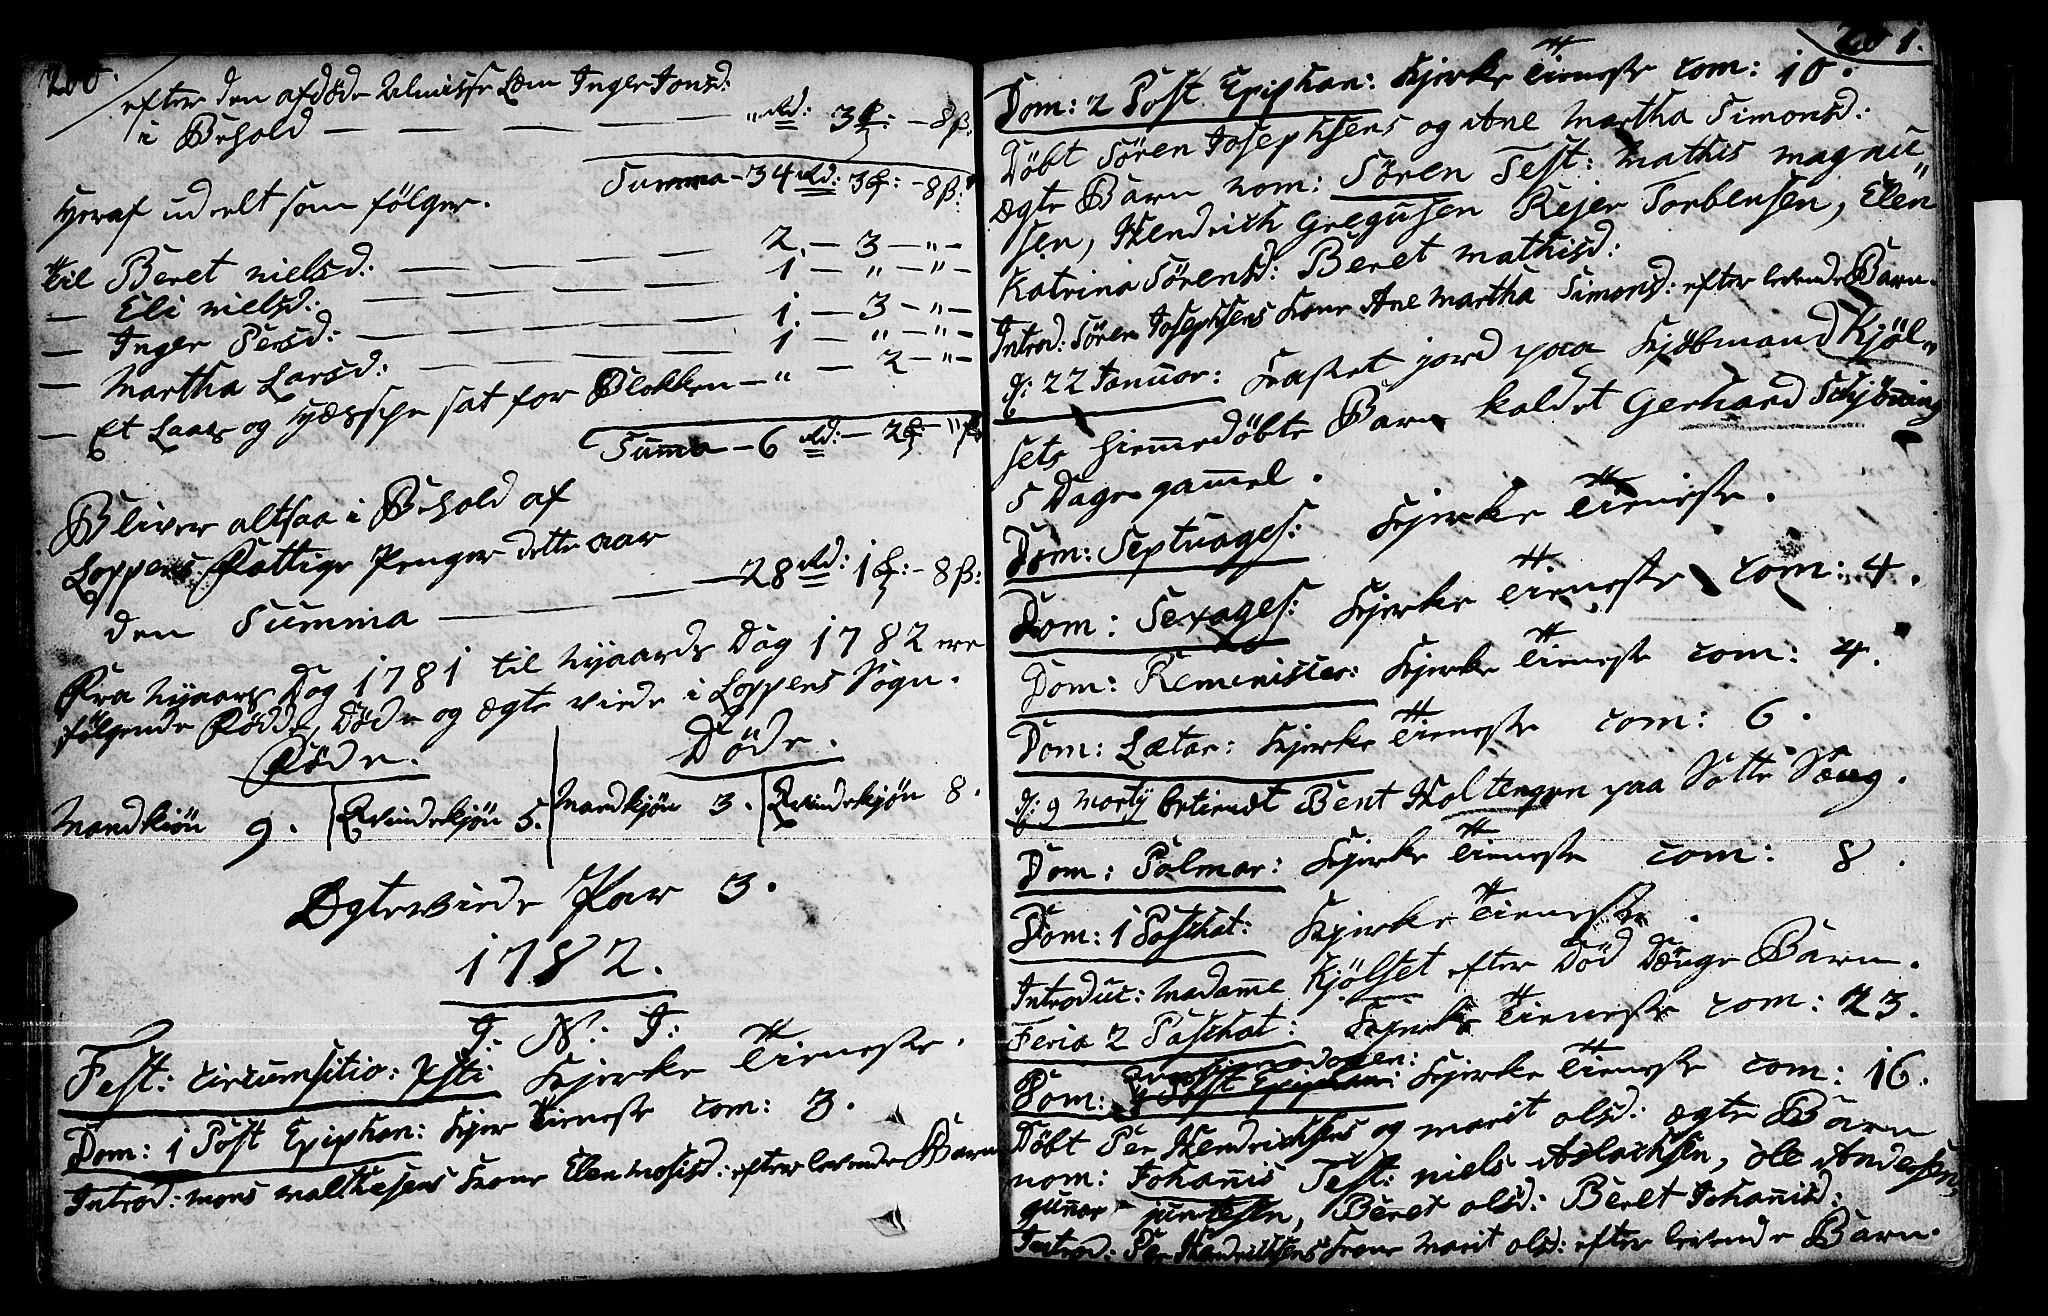 200.
efter den afdöde Almisse Lem Inger Jonsd:
i Behold — — — — — — „ Rd: 3 — 8 ß:
Summa — 34 Rd: 3 — 8 ß:
Heraf udelt som fölger.
til Beret Nielsd: — — — — 2. — 3 — „ —
— Eli Nielsd: — — — — 1 — „ — „ —
— Inger Persd: — — — — 1. — 3 — „ —
— Martha Larsd: — — — — 1 — „ — „ —
— Et Laas og Hæspe sat for Blokken — „ — 2 — „ —
Summa — 6 Rd: — 2 — „ ß
Bliver altsaa i Behold af
Loppens Fattige Penger dette aar
den Summa — — — 28 Rd: 1 — 8 ß:
Fra Nyaars Dag 1781 til Nyaards Dag 1782 ere
fölgende Födde, Döde og ægte viede i Loppens Sogn.
Föde. Döde.
Mandkiön 9. Qvindekjön 5. Mandkjön 3. Qvindekjön 8.
Ægteviede Par 3.
1782.
J: N: J:
Fest: Circumsitio: Xsti Kjerke Tieneste.
Dom: 1 Post Epiphan: Kjer Tieneste com: 3.
Introd: Mons Malthesens Kone Elen Mosisd: efter levende Barn
201.
Dom: 2 Post Epiphan: Kjerke Tieneste com: 10.
Döbt Sören Josephsens og Ane Martha Simonsd:
ægte Barn nom: Sören Test: Mathis Magnu„
sen, Hendrich Gregusen Rejer Torbensen, Elen
Katrina Sörensd: Beret Mathisd:
Introd: Sören Josephsens Kone Ane Martha Simonsd: efter levende Barn.
d: 22 Januar: Kastet jord paa Kjöbmand Kjöl„
sets hiemedöbte Barn kaldet Gerhard Schjöning
5 Dage gammel.
Dom: Septuages: Kjerke Tieneste.
Dom: Sexages: Kjerke Tieneste com: 4.
Dom: Reminister: Kjerke Tieneste com: 4.
Dom: Lætar: Kjerke Tieneste com: 6.
d: 9 Martij betient Bent Holtengen paa Sotte Sæng.
Dom: Palmar: Kjerke Tieneste com: 8.
Dom: 1 Paschat: Kjerke Tieneste.
Introduc: Madamme Kjölset efter Död Dænge Barn.
Feria 2 Paschat: Kjerke Tieneste com: 23.
Dom: Post Epiphan: Kjerke Tieneste com: 16.
Döbt Per Hendrichsens og Marit Olsd: ægte Barn
nom: Johannis Test: Niels Aslachsen, Ole Andersen,
Gunnar Juntesen, Beret Olsd: Beret Johannisd:
Introd: Per Hendrichsens Kone Marit Olsd: efter levende Barn.